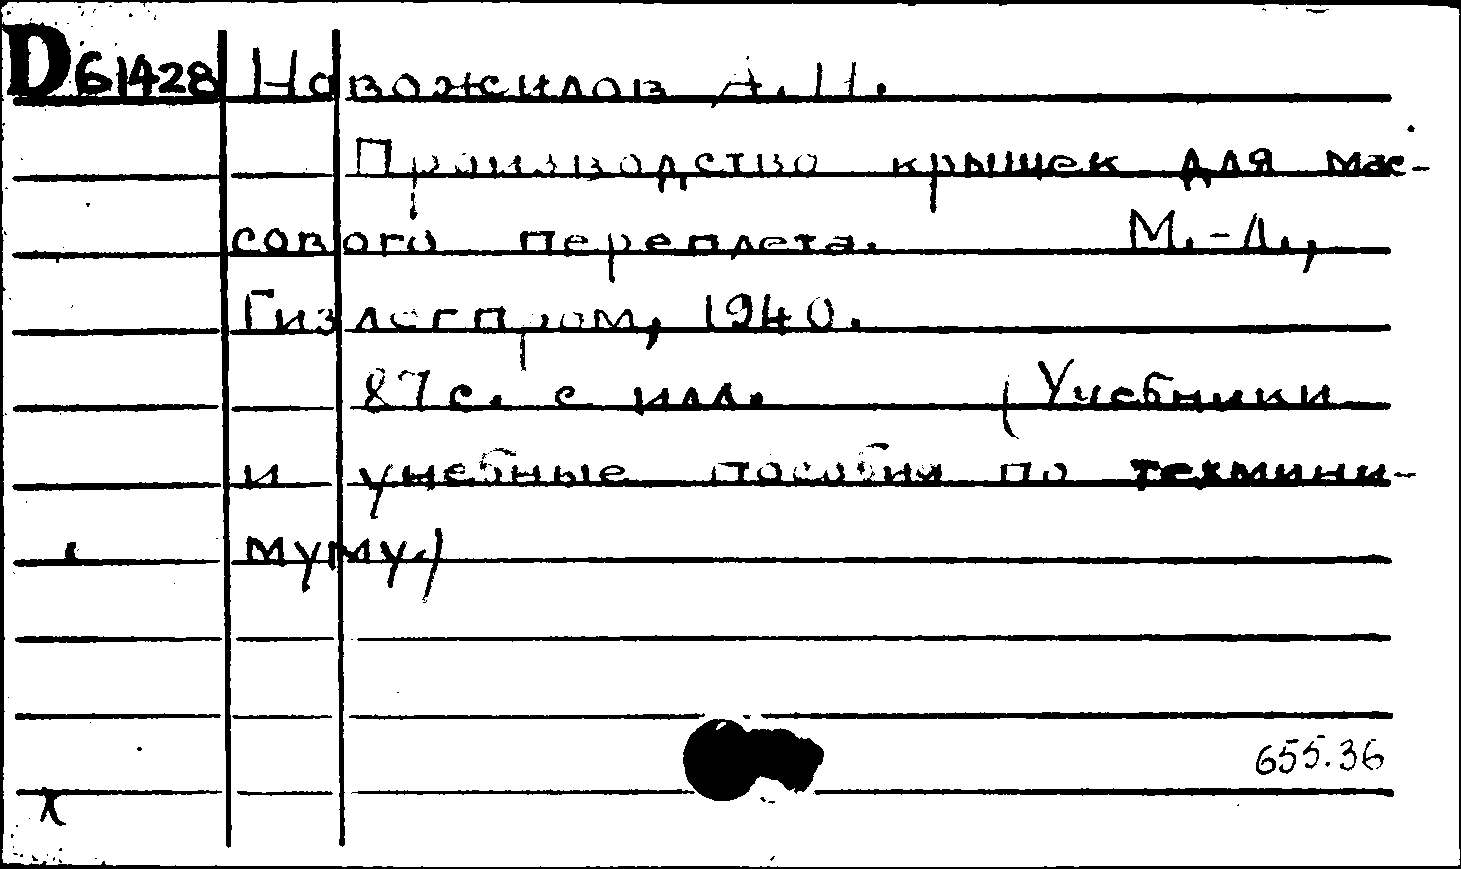 D61428 Новожилов А.Н.
Производство крышек для мас-
сового переплета. М.-Л.,
Гизлегпром, 1940.
87 с. с илл. (Учебники
и учебные пособия по техмини-
муму.)
655.36